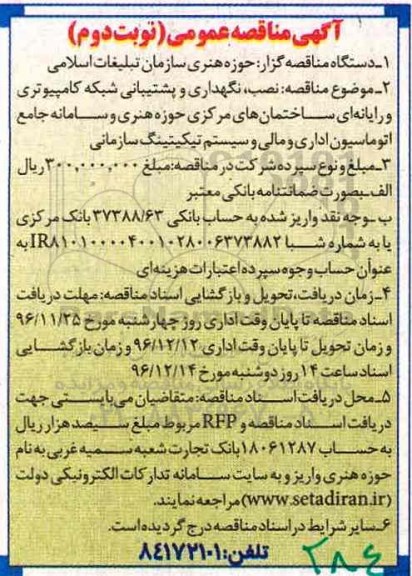 آگهی مناقصه عمومی (نوبت دوم)
۱ـ دستگاه مناقصه گزار: حوزه هنری سازمان تبلیغات اسلامی
۲ـ موضوع مناقصه: نصب، نگهداری و پشتیبانی شبکه کامپیوتری
و رایانه‌ای ساختمان‌های مرکزی حوزه هنری و سامانه جامع
اتوماسیون اداری و مالی و سیستم تیکیتینگ سازمانی
۳ـ مبلغ و نوع سپرده شرکت در مناقصه: مبلغ ۳۰۰,۰۰۰,۰۰۰ ریال
الف ـ بصورت ضمانتنامه بانکی معتبر
ب ـ وجه نقد واریز شده به حساب بانکی ۳۷۳۸۸/۶۳ بانک مرکزی
یا به شماره شبا IR۸۱۰۱۰۰۰۰۴۰۰۱۰۲۸۰۰۶۳۷۳۸۸۲ به
عنوان حساب وجوه سپرده اعتبارات هزینه‌ای
۴ـ زمان دریافت، تحویل و بازگشایی اسناد مناقصه: مهلت دریافت
اسناد مناقصه تا پایان وقت اداری روز چهارشنبه مورخ ۹۶/۱۱/۲۵
و زمان تحویل تا پایان وقت اداری ۹۶/۱۲/۱۲ و زمان بازگشایی
اسناد ساعت ۱۴ روز دوشنبه مورخ ۹۶/۱۲/۱۴
۵ـ محل دریافت اسناد مناقصه: متقاضیان می‌بایستی جهت
دریافت اسناد مناقصه و RFP مربوط مبلغ سیصد هزار ریال
به حساب ۱۸۰۶۱۲۸۷ بانک تجارت شعبه سمیه غربی به نام
حوزه هنری واریز و به سایت سامانه تدارکات الکترونیکی دولت
(www.setadiran.ir) مراجعه نمایند.
۶ـ سایر شرایط در اسناد مناقصه درج گردیده است.
تلفن: ۸۴۱۷۲۱۰۱
۳۸۴